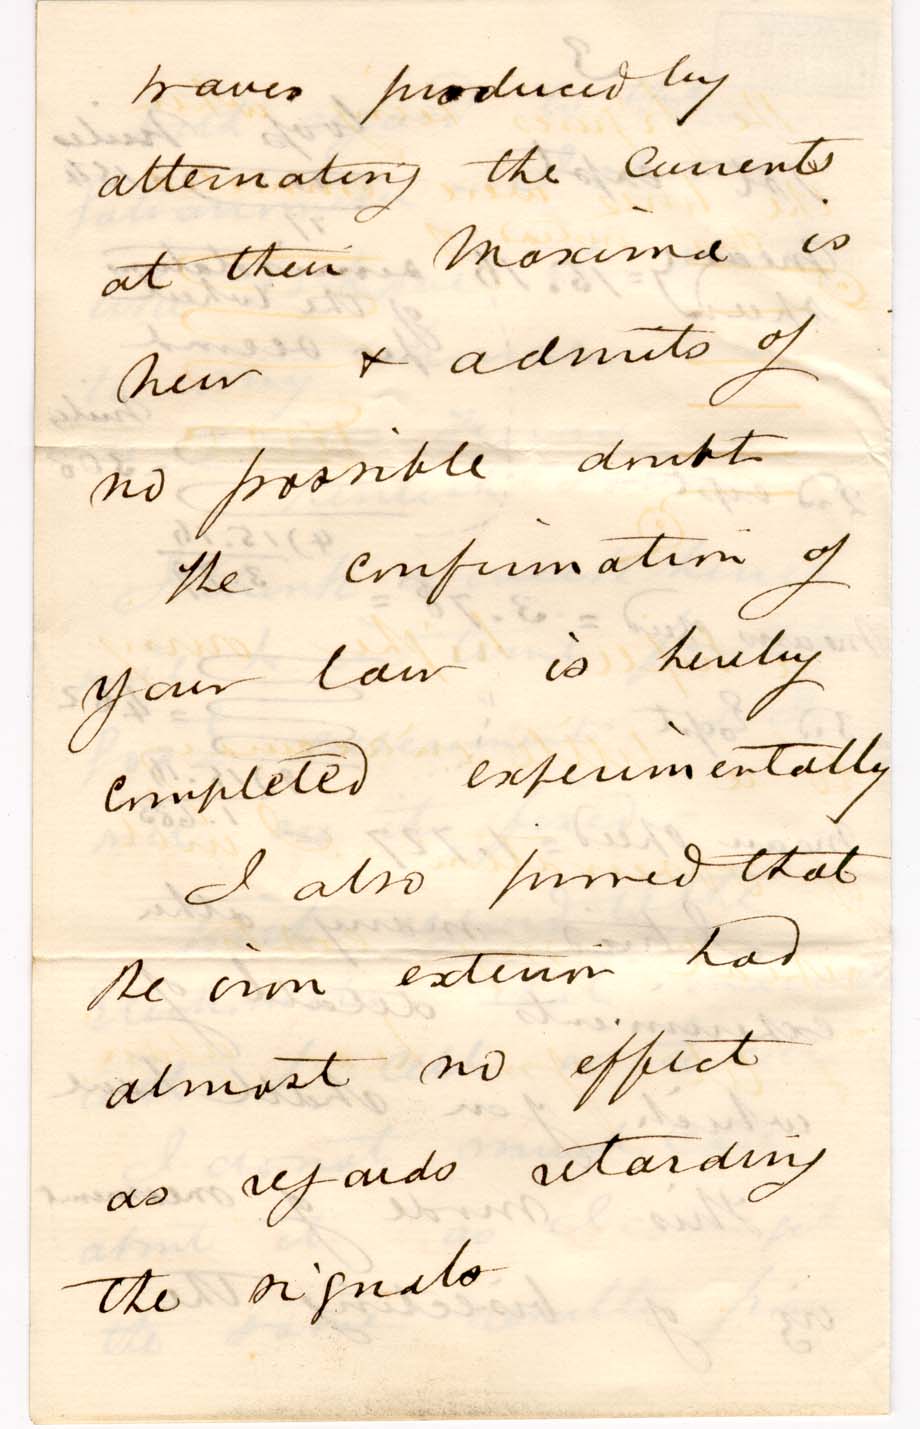 waves produced by
alternating the Currents
at their Maxima is
new & admits of
no possible doubt
The confirmation of
your law is hereby
completed experimentally
I also proved that
the iron exterior had
almost no effect
as regards retarding
the signals